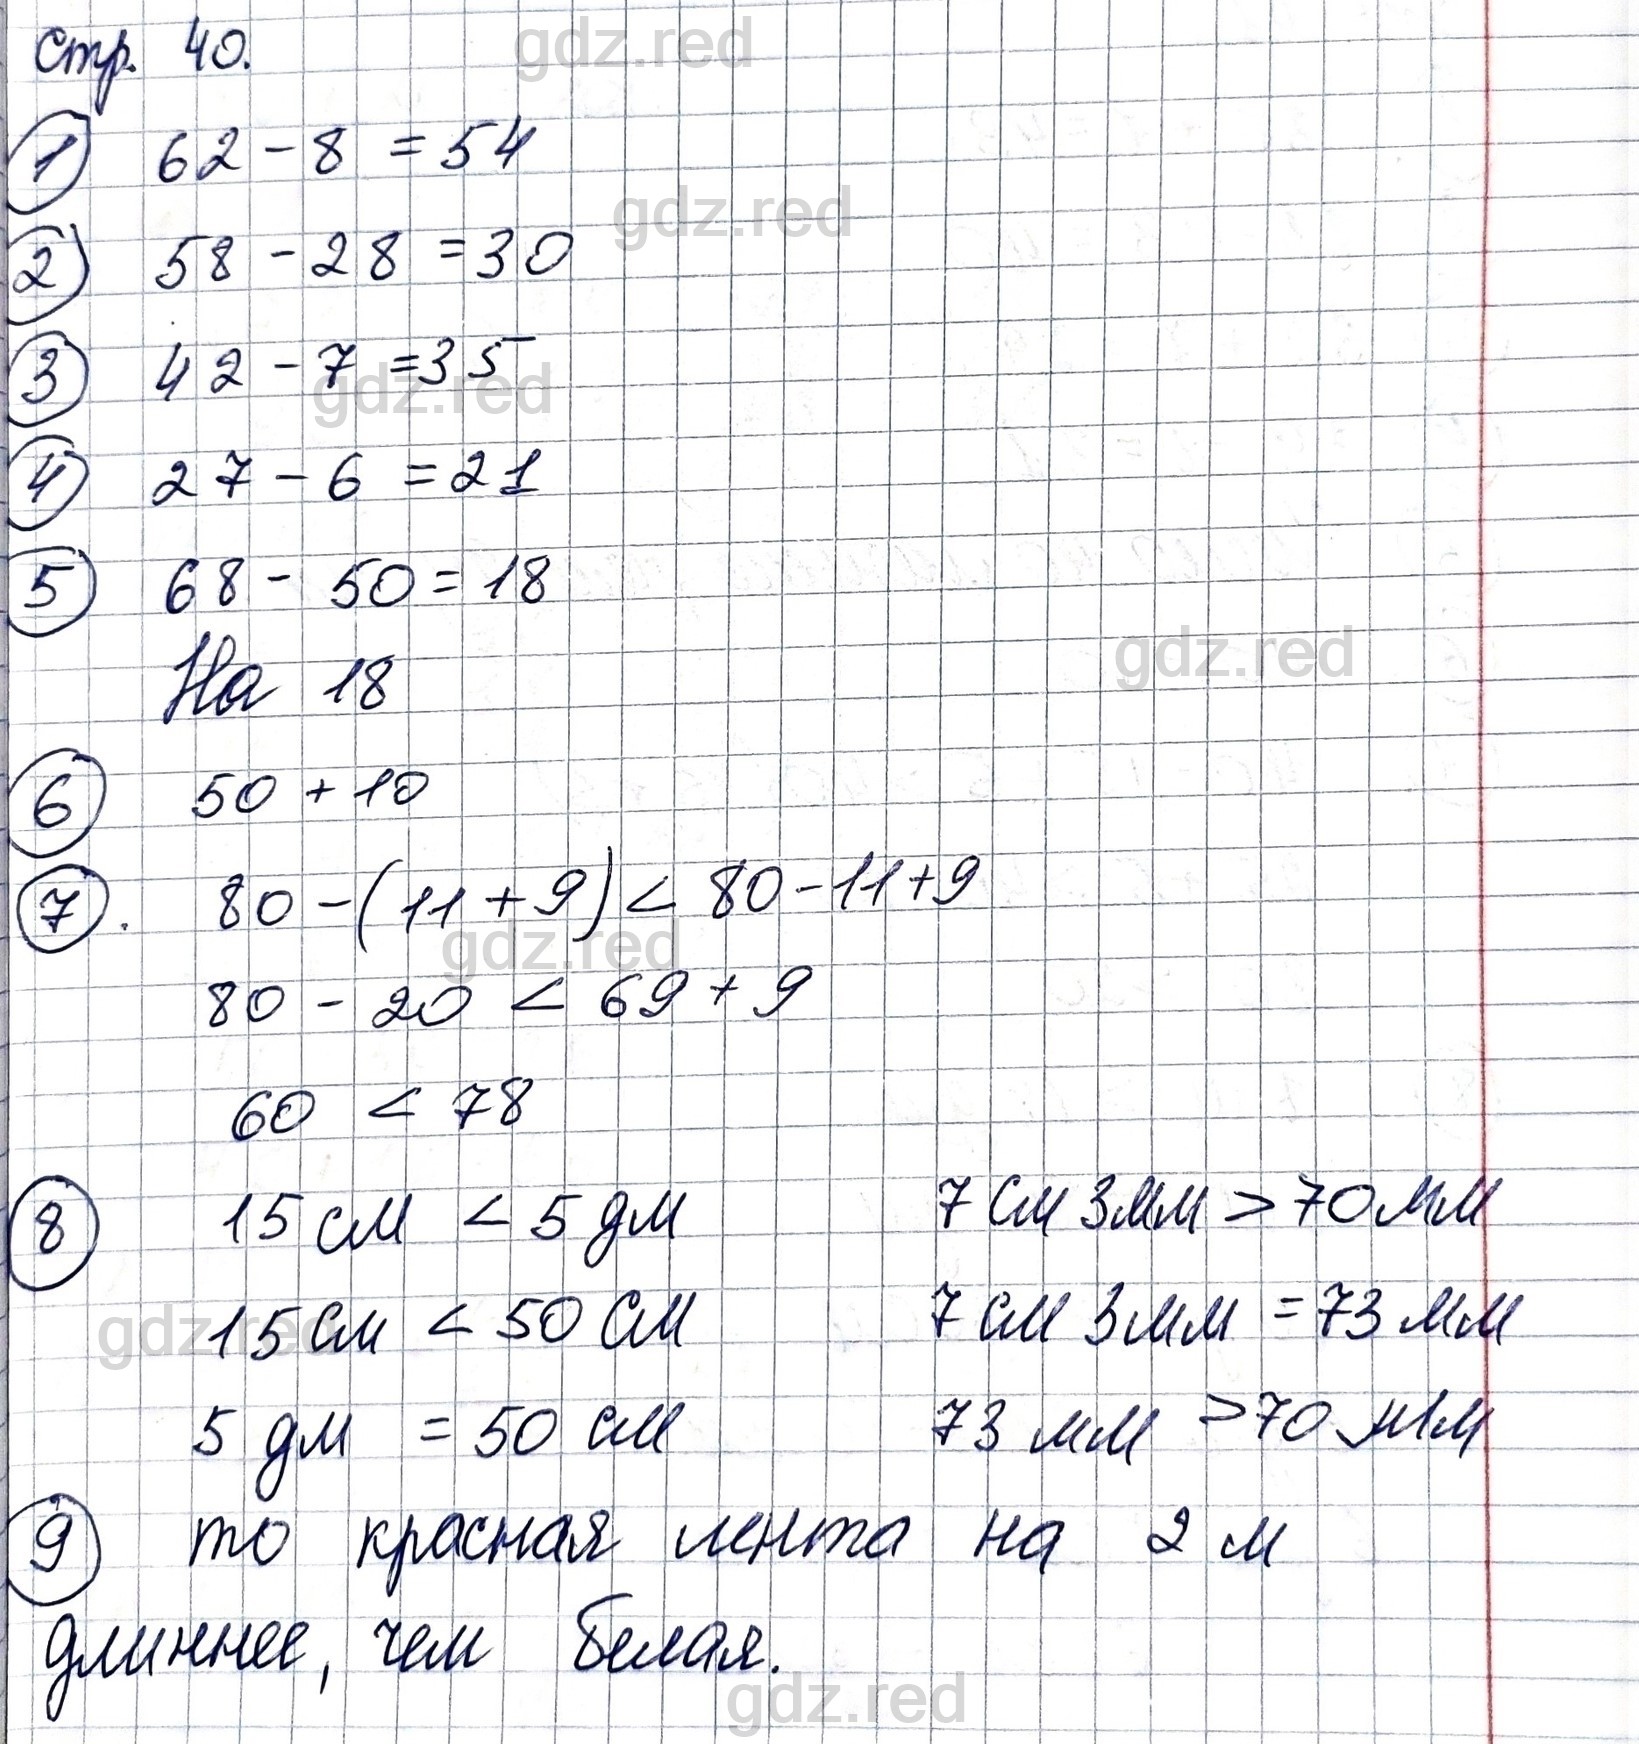 стр. 40.
gdz.red
1 62 - 8 = 54
gdz.red
2 58 - 28 = 30
3 42 - 7 = 35
gdz.red
4 27 - 6 = 21
5 68 - 50 = 18
gdz.red
На 18
6 50 + 10
7. 80 - (11 + 9) < 80 - 11 + 9
gdz.red
80 - 20 < 69 + 9
60 < 78
8 15 см < 5 дм 7 см 3 мм > 70 мм
gdz.red
15 см < 50 см 7 см 3 мм = 73 мм
5 дм = 50 см 73 мм > 70 мм
9 то красная лента на 2 м
длиннее, чем белая.
gdz.red